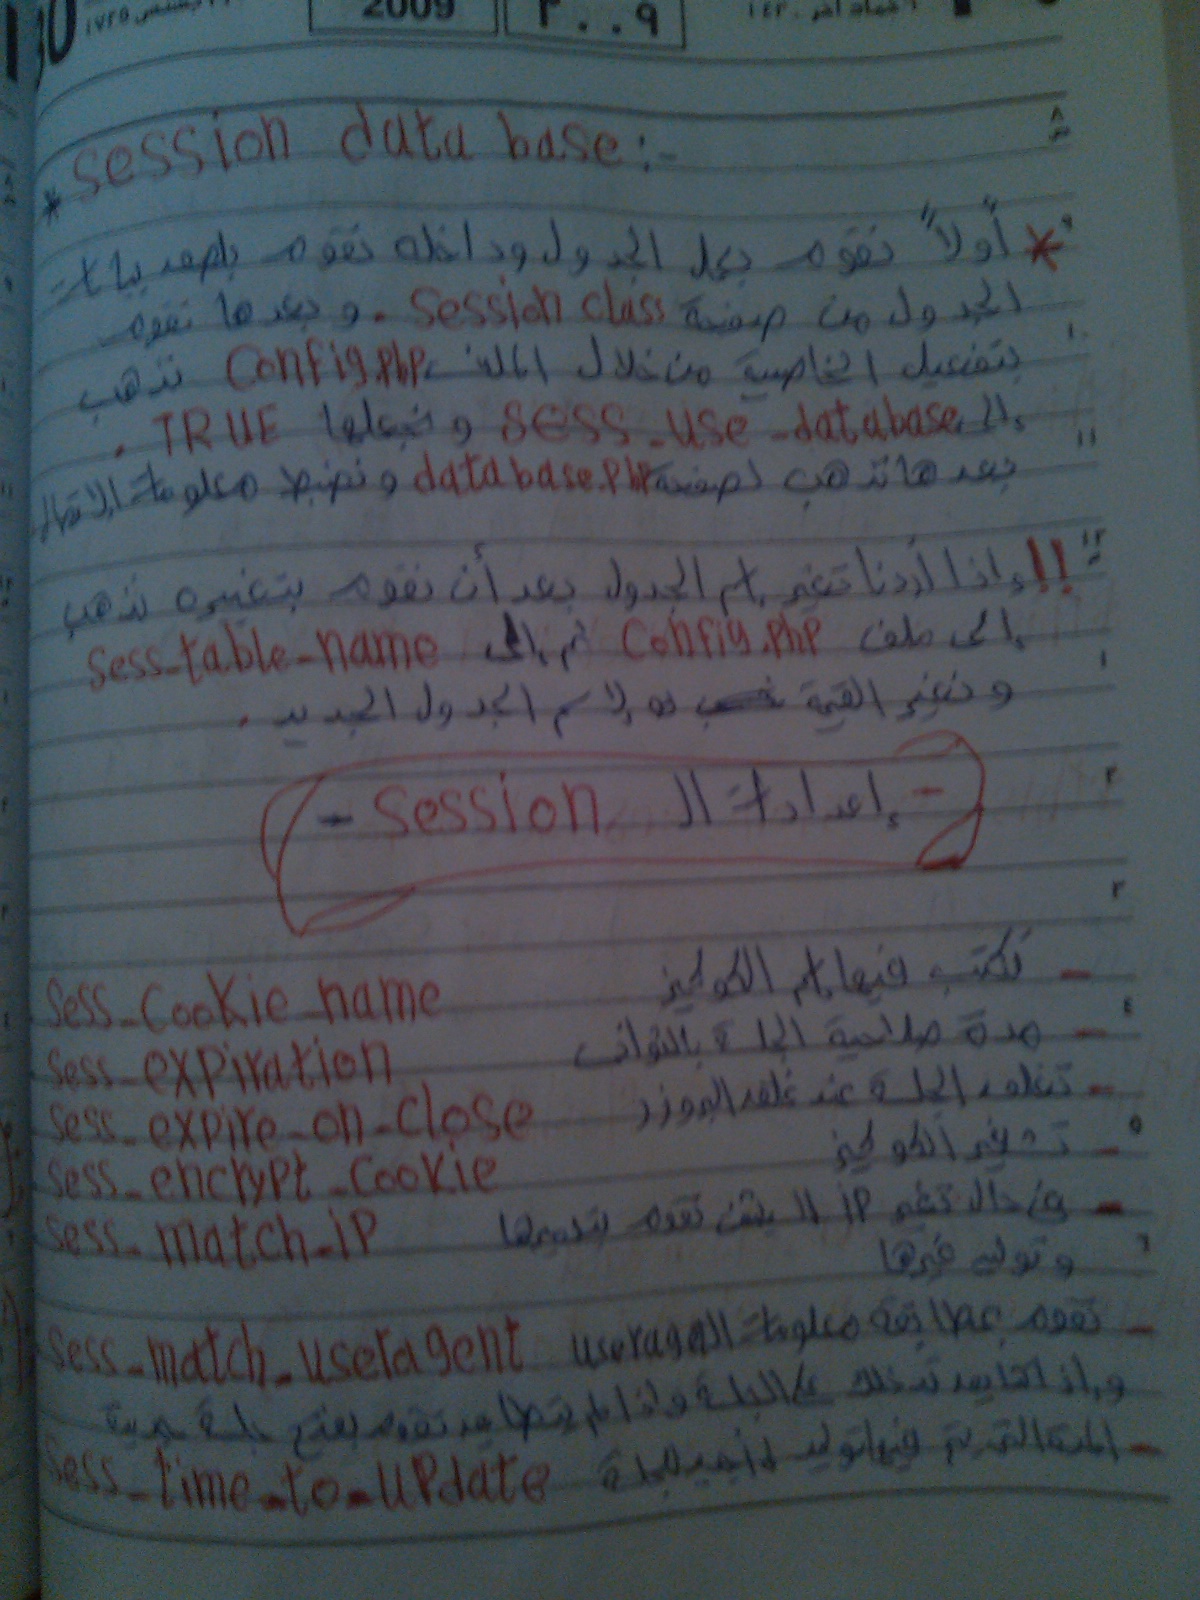 2009
٢٠٠٩
* session data base:-
* أولاً نقوم بعمل الجدول وداخله نقوم
الجدول من صفحة session class. وبعدها نقوم
بتفعيل الخاصية من خلال الملف config.php نذهب
إلى sess_use_database ونجعلها TRUE .
بعدها نذهب لصفحة database.php ونضبط معلومات الاتصال
!! إذا أردنا تغير اسم الجدول بعد أن نقوم بتغييره نذهب
إلى ملف config.php ثم إلى sess_table_name
ونغير القيمة لاسم الجدول الجديد .
- إعدادات ال session -
- نكتب فيها اسم الكوكيز sess_cookie_name
- مدة صلاحية الجلسة بالثواني sess_expiration
- الجلسة عند غلق البروزر sess_expire_on_close
- تشفير الكوكيز sess_encrypt_cookie
- في حال تغير ip اليوزر نقوم بتدميرها sess_match_ip
وتوليد غيرها
- نقوم بمطابقة معلومات ال useragent sess_match_useragent
نقوم بفتح جلسة جديدة
- المدة التي يتم فيها توليد sess_time_to_update